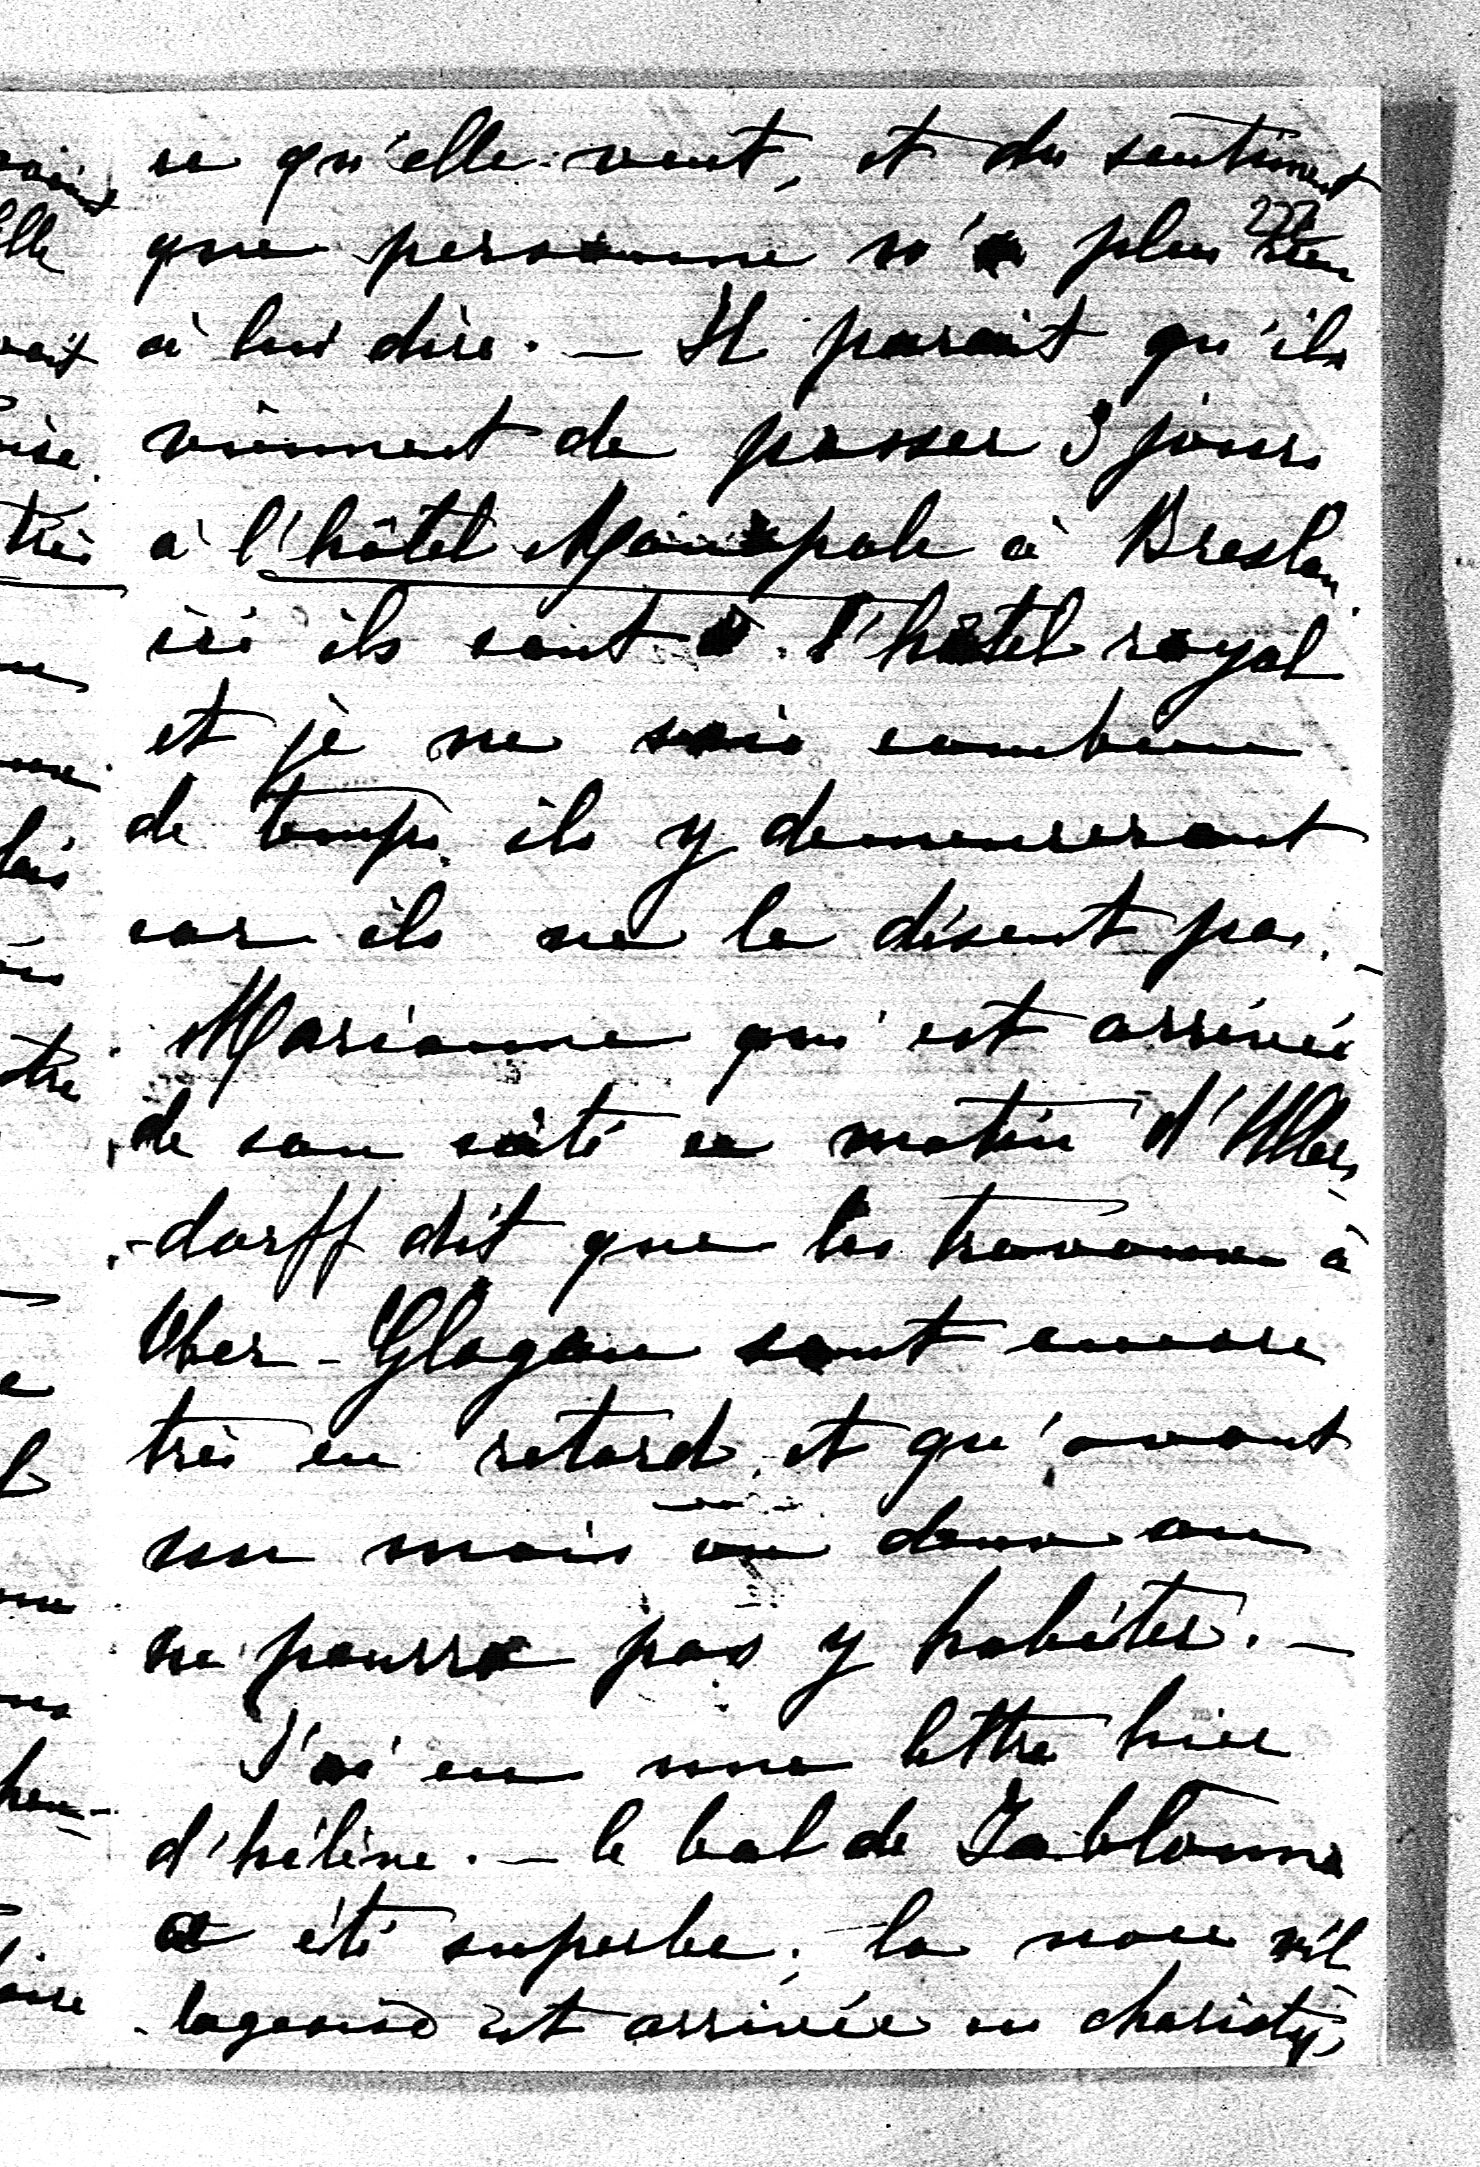 ce qu'elle veut, et du sentiment
227
que personne n'a plus rien
à lui dire. — Il parait qu'ils
viennent de passer 3 jours
à l'hôtel Monopole à Breslau.
ici ils sont à l'hôtel royal
et je ne sais combien
de temps ils y demeureront
car ils ne le disent pas. –
Marianne qui est arrivée
de son côté ce matin d'Ullers
-dorff dit que les travaux à
Ober-Glogau sont encore
très en retard et qu'avant
un mois ou deux on
ne pourra pas y habiter. —
J'ai eu une lettre hier
d'hélène. — le bal de Jablonna
a été superbe. la noce vil
-lageoise est arrivée en chariots,